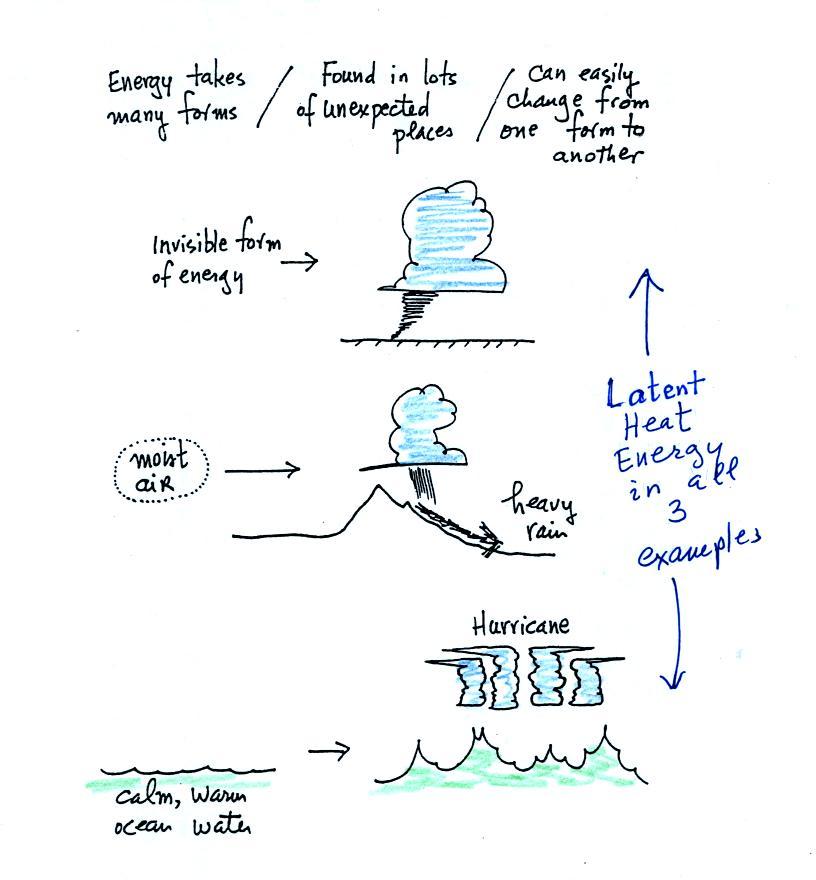 Energy takes
many forms /
Found in lots
of unexpected
places /
can easily
change from
one form to
another
Invisible form
of energy
moist
air
heavy
rain
Latent
Heat
Energy
in all
3
examples
Hurricane
calm, warm
ocean water